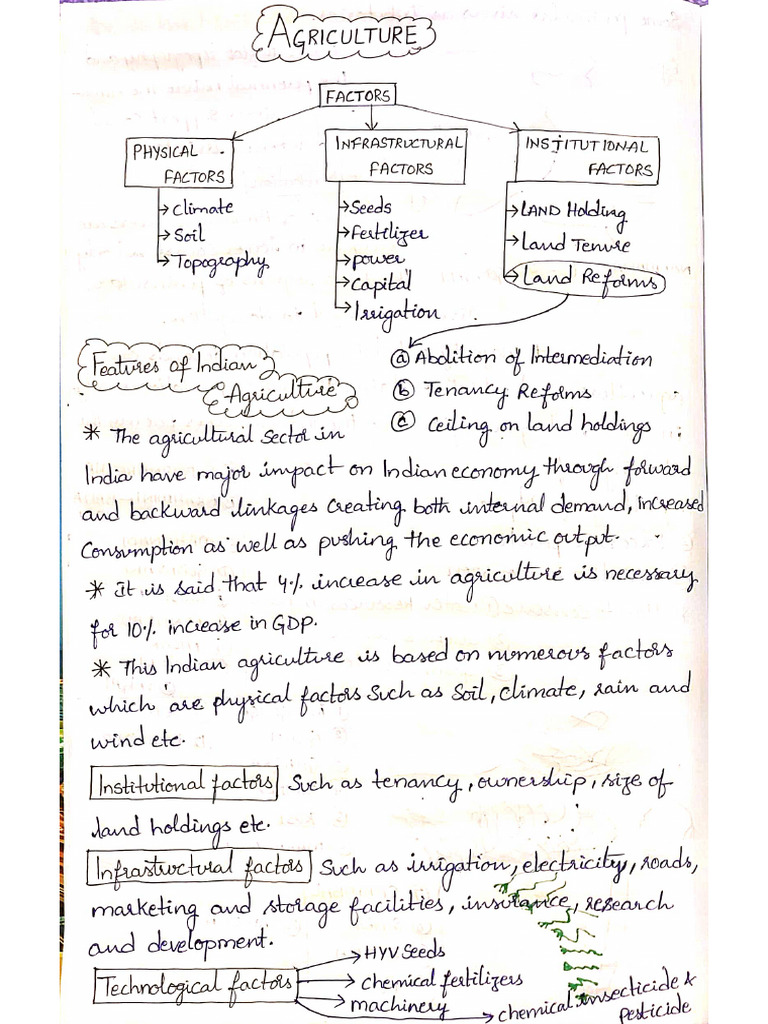 AGRICULTURE
FACTORS
PHYSICAL
FACTORS
→ Climate
→ Soil
→ Topography
INFRASTRUCTURAL
FACTORS
→ Seeds
→ Fertilizer
→ power
→ Capital
→ Irrigation
INSTITUTIONAL
FACTORS
→ LAND Holding
→ Land Tenure
→ Land Reforms
ⓐ Abolition of Intermediation
ⓑ Tenancy Reforms
ⓒ Ceiling on land holdings
Features of Indian
Agriculture
* The agricultural sector in
India have major impact on Indian economy through forward
and backward linkages creating both internal demand, increased
Consumption as well as pushing the economic output.
* It is said that 4% increase in agriculture is necessary
for 10% increase in GDP.
* This Indian agriculture is based on numerous factors
which are physical factors Such as Soil, climate, rain and
wind etc.
Institutional factors Such as tenancy, ownership, size of
land holdings etc.
Infrastructural factors Such as irrigation, electricity, roads,
marketing and storage facilities, insurance, research
and development.
Technological factors
→ HYV Seeds
→ chemical fertilizers
→ machinery
→ chemical insecticide &
Pesticide